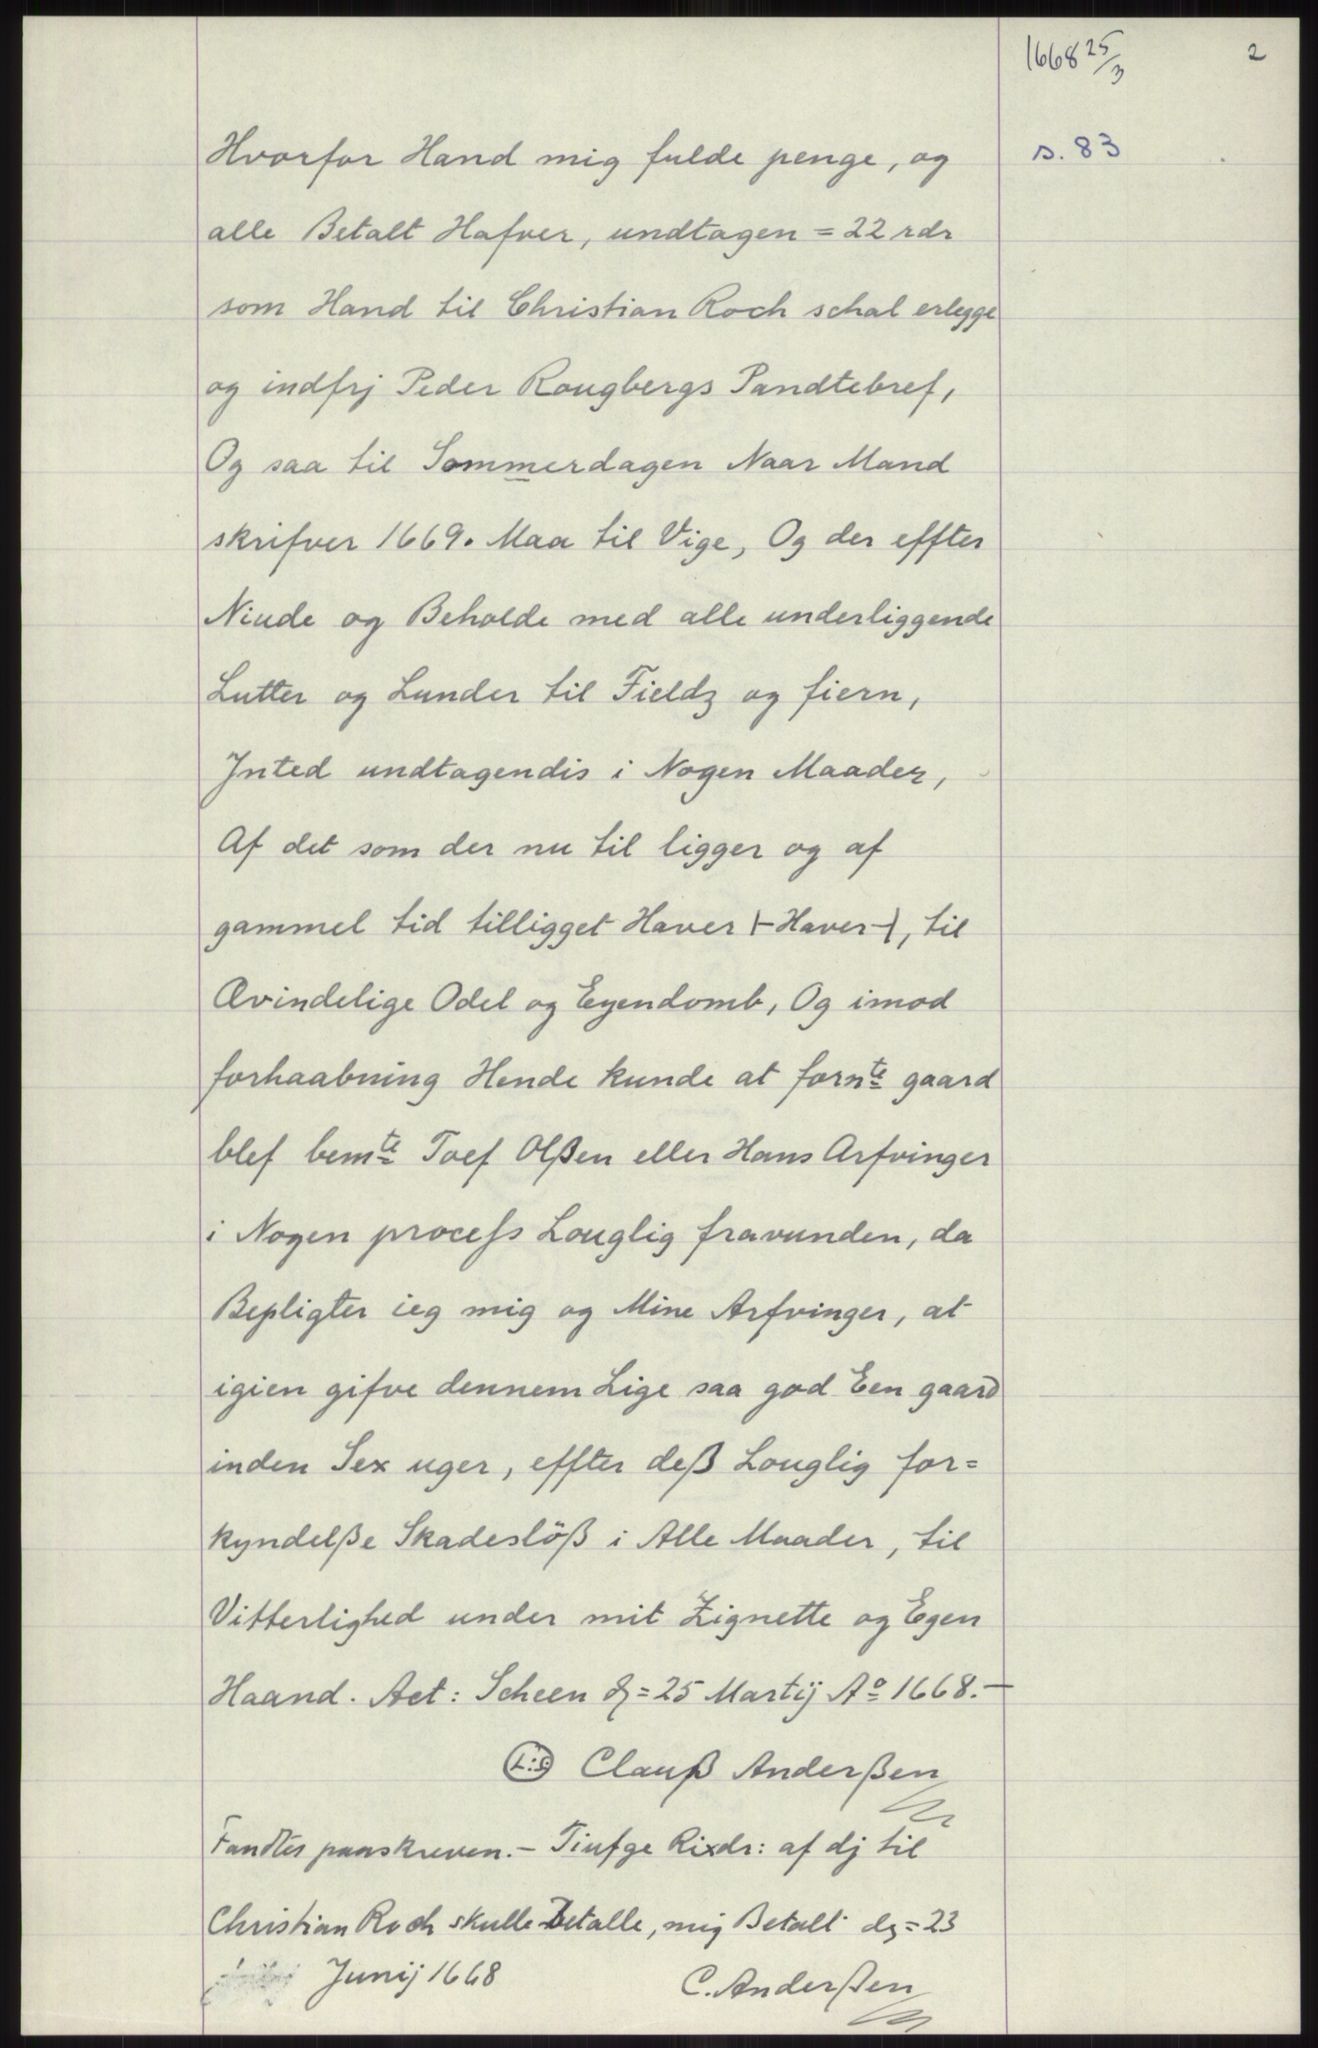 1668 25/3
2
s. 83
Hvorfor Hand mig fulde penge, og
alle Betalt Hafver, undtagen = 22 rdr
som Hand til Christian Roch schal erlegge
og indfrj Peder Rougbergs Pandtebref,
Og saa til Sommerdagen Naar Mand
skrifver 1669. Maa til Vige, Og der effter
Niude og Beholde med alle underliggende
Lutter og Lunder til Fieldz og fiern,
Jnted undtagendis i Nogen Maader,
Af det som der nu til ligger og af
gammel tid tilligget Haver |-Haver-|, til
Ævindelige Odel og Eyendomb, Og imod
forhaabning Hende kunde at fornte gaard
blef bemte Toef Olßen eller Hans Arfvinger
i Nogen process Louglig fravunden, da
Bepligter ieg mig og Mine Arfvinger, at
igien gifve dennem Lige saa god Een gaard
inden Sex uger, effter deß Louglig for=
kyndelße Skadeslöß i Alle Maader, til
Vitterlighed under mit Zignette og Egen
Haand. Act: Scheen d = 25 Martij Ao 1668.-
L:S: Clauß Anderßen
Fandtes paaskreven.- Tiufge Rixdr: af dj til
Christian Roch skulle Betalle, mig Betalt dz = 23
Junij 1668
C. Anderßen